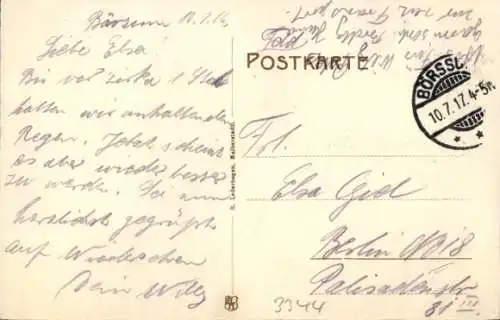 Börssum 10.7.17.
Liebe Elsa!
Bis vor zirka 1 Std
hatten wir anhaltenden
Regen. Jetzt scheint
es aber wieder besser
zu werden. Sei nun
herzlichst gegrüßt
auf Wiedersehen
Dein Willy
R. Lederbogen, Halberstadt.
Feld
POSTKARTE
BÖRSSU
10.7.17.4-5N.
Frl.
Elsa Giel
Berlin NO18
Palisadenstr
81 III
3344